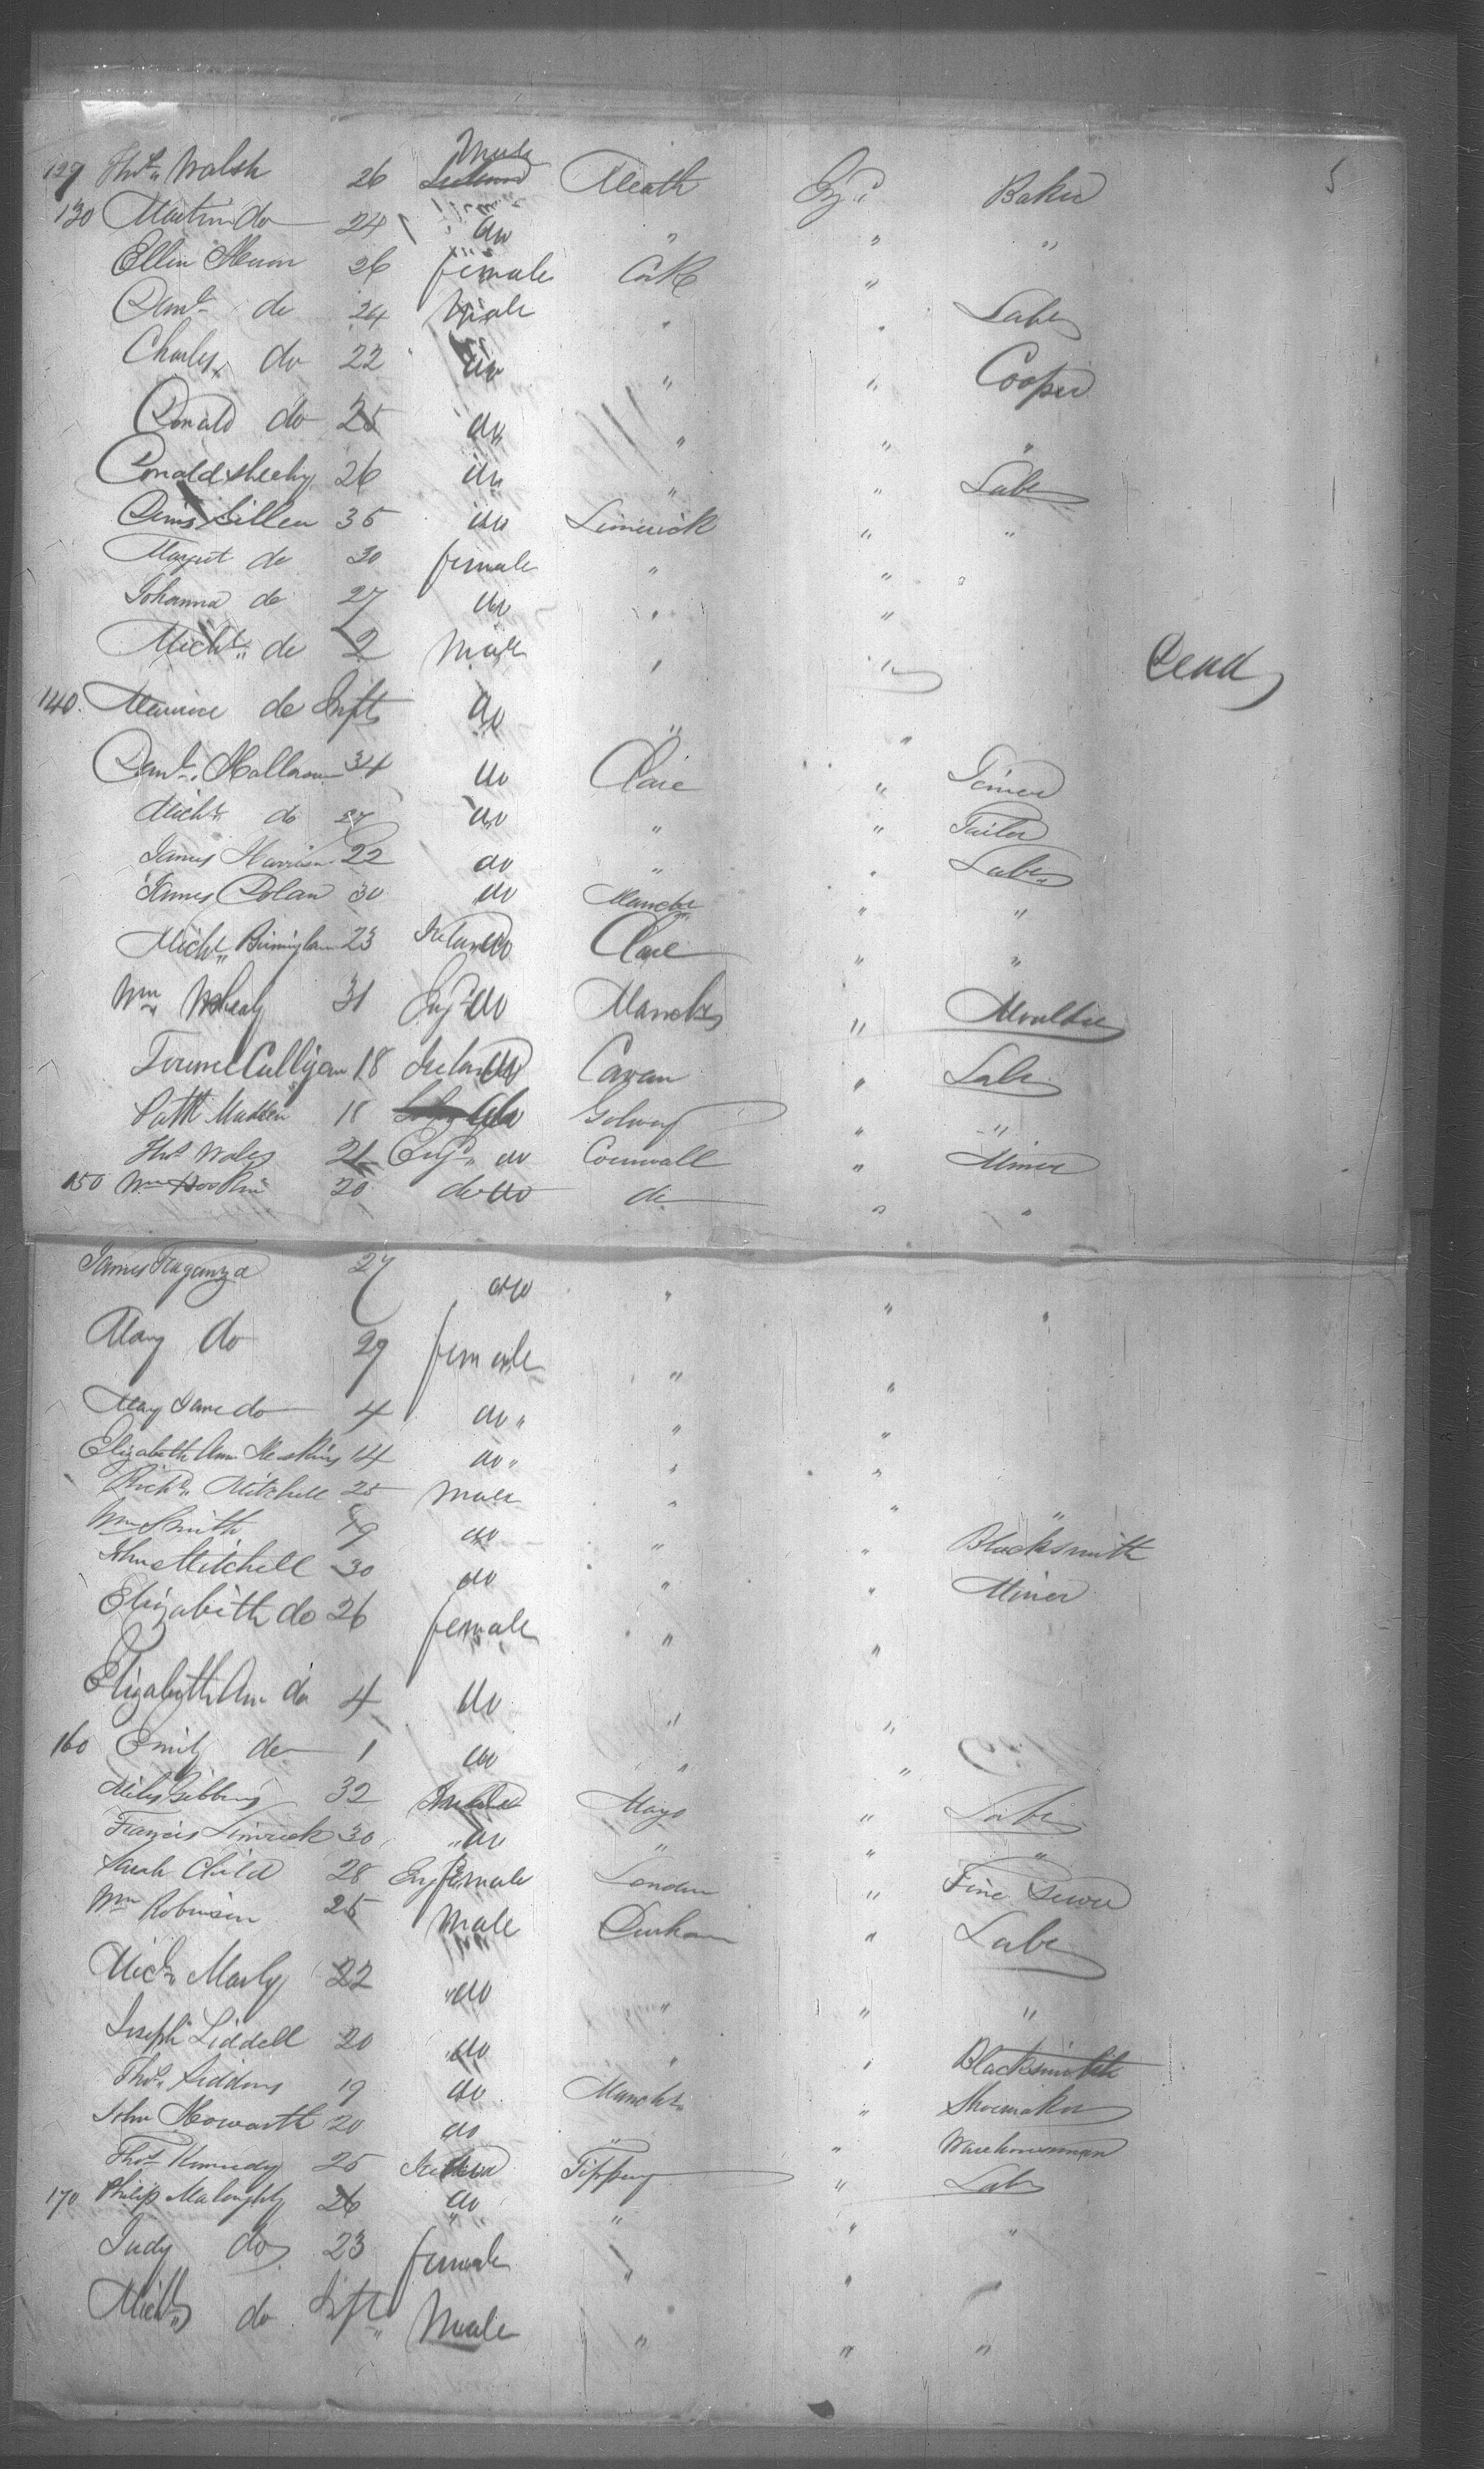 5
127 Thos Walsh 26 Male Meath Baker
130 Martin do 24 do " " "
Ellin 26 female Cork "
Danl do 24 Male " " Labr
Charles do 22 do " " Cooper
Donald do 25 do " " "
Donald Sheehy 26 do " " Labr
Denis 35 do Limerick " "
Margret do 30 female " "
Johanna do 27 do " "
Michl do 2 Male " " Dead
140 Maurice do Inft do " "
Danl Halloran 34 do Clare "
Michl do 27 do " " Tailor
James Harrison 22 do " " Labr
James Dolan 30 do Manchr " "
Michl Birmingham 23 Ireland do Clare " "
Wm 31 Engd do Manchr " Moulder
Culligan 18 Ireland do Cavan " Labr
Patk Madden 18 do Galway " "
Thos Wales 21 Engd do Cornwall " Miner
150 Wm Hoskin 20 do do do " "
James Traganza 27 do " " "
Mary do 29 female " "
Mary Jane do 4 do " " "
Elizabeth Ann 14 do " " "
Richd Mitchell 25 Male " " "
Wm Smith 19 do " " Blacksmith
John Mitchell 30 do " " Miner
Elizabeth do 26 female " "
Elizabeth Ann do 4 do " "
160 Emily do 1 do " "
Miles Gibbons 32 Ireland Mayo " Labr
Francis Limrick 30 " do " " "
Sarah Child 28 Eng female London " Fine Sewer
Wm Robinson 25 Male Durham " Labr
Michl Marly 22 " do " " "
Joseph Liddell 20 " do " " Blacksmith
Thos Siddons 19 do Manchr " Shoemaker
John Howarth 20 do " " Warehouseman
Thos Kennedy 25 Ireland Tippery " Labr
170 Philip 26 do " " "
Judy do 23 female " "
Michl do Inft Male " " "